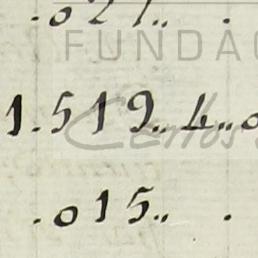 .027..  .
FUNDAÇ
1.519..4..0
Carlos
.015..  .